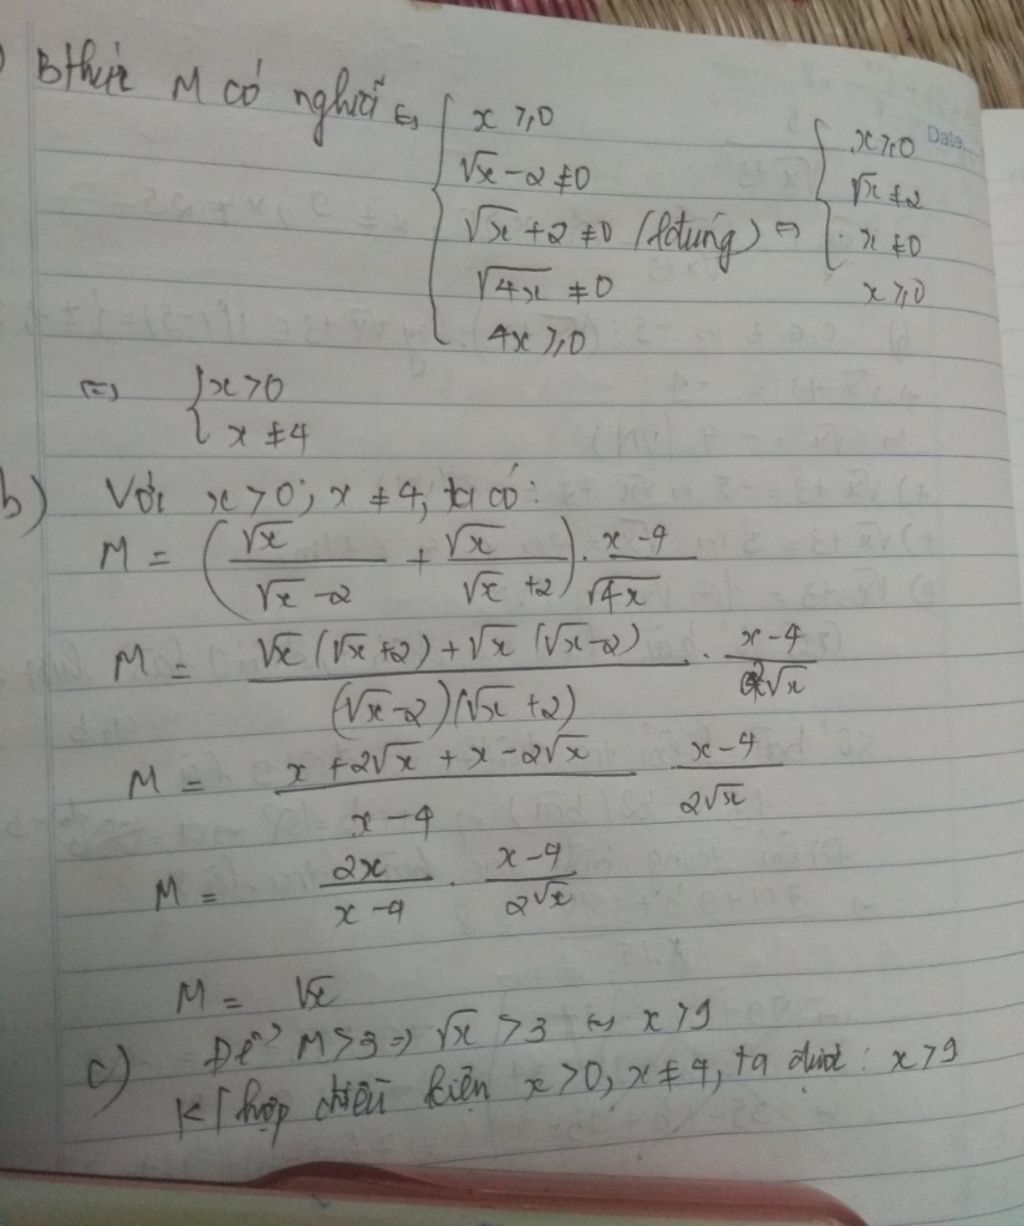 ) Bthức M có nghĩa ⇔ { x ⩾ 0
√x - 2 ≠ 0
√x + 2 ≠ 0 (lđúng) ⇔ { x ⩾ 0
√x ≠ 2
x ≠ 0
x ⩾ 0
√4x ≠ 0
4x ⩾ 0
Date
⇔ { x > 0
x ≠ 4
b) Với x > 0; x ≠ 4, ta có:
M = (√x/(√x - 2) + √x/(√x + 2)) . (x - 4)/√4x
M = (√x (√x + 2) + √x (√x - 2))/((√x - 2)(√x + 2)) . (x - 4)/(2√x)
M = (x + 2√x + x - 2√x)/(x - 4) (x - 4)/(2√x)
M = 2x/(x - 4) . (x - 4)/(2√x)
M = √x
c) Để M > 3 ⇒ √x > 3 ⇔ x > 9
K/hợp điều kiện x > 0, x ≠ 4, ta được: x > 9